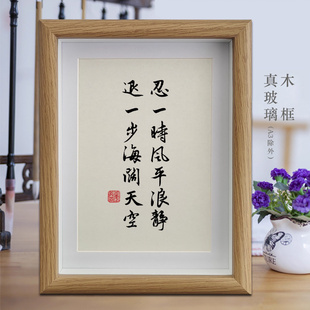 忍一時风平浪静
退一步海阔天空
木框
真玻璃
(A3除外)